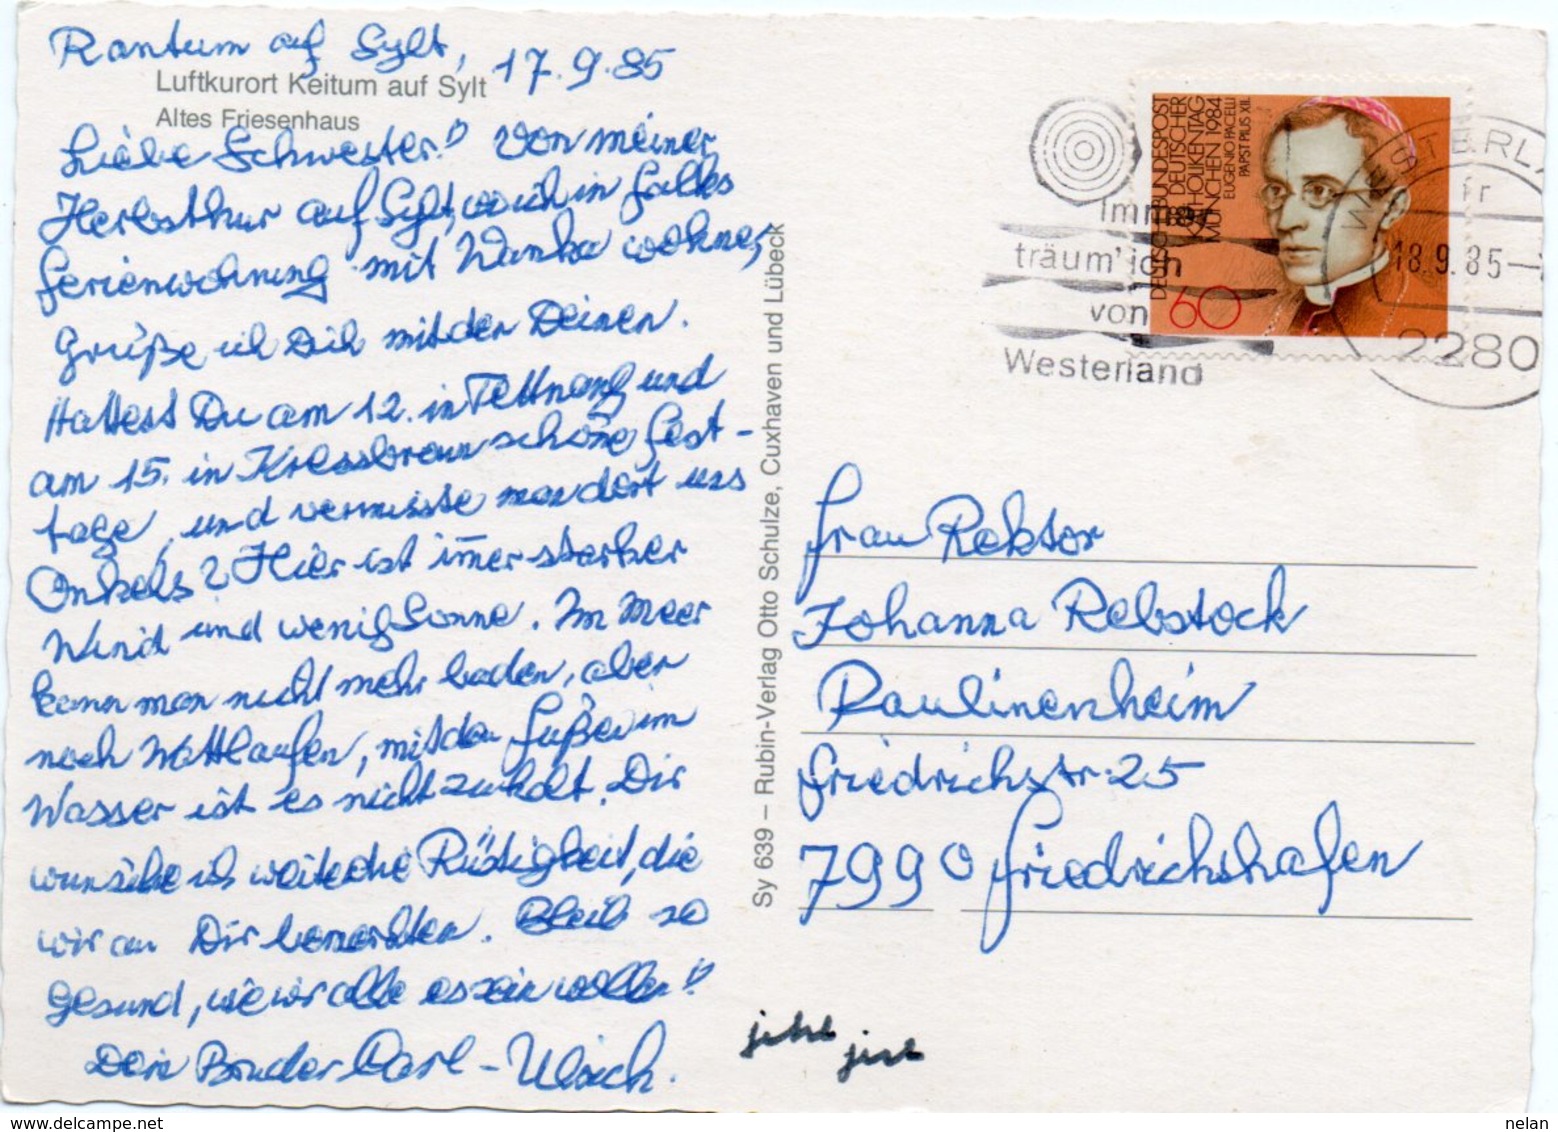 Rantum auf Sylt, 17.9.85
Luftkurort Keitum auf Sylt
Altes Friesenhaus
Liebe Schwester! Von meiner
Herbstkur auf Sylt, wo ich in Falks
Ferienwohnung mit Wanka wohne,
grüße ich Dich mit den Deinen.
Hattest Du am 12. in Tettnang und
am 15. in Kressbronn schöne Fest-
tage, und vermisste man dort uns
Onkels? Hier ist im̄er starker
Wind und wenig Sonne. Im Meer
kann man nicht mehr baden, aber
noch Wattlaufen, mit den Füßen im
Wasser ist es nicht zu kalt. Dir
wünsche ich weiterhin Rüstigkeit, die
wir an Dir bewundern. Bleib so
gesund, wie wir alle es sein wollen!
Dein Bruder Carl-Ulrich.
Sy 639 – Rubin-Verlag Otto Schulze, Cuxhaven und Lübeck
DEUTSCHE BUNDESPOST
88. DEUTSCHER
KATHOLIKENTAG
MÜNCHEN 1984
EUGENIO PACELLI
PAPST PIUS XII.
60
Immer
träum' ich
von
Westerland
WESTERLA
18.9.85
2280
Frau Rektor
Johanna Rebstock
Paulinenheim
Friedrichstr. 25
7990 Friedrichshafen
delcampe.net
nelan